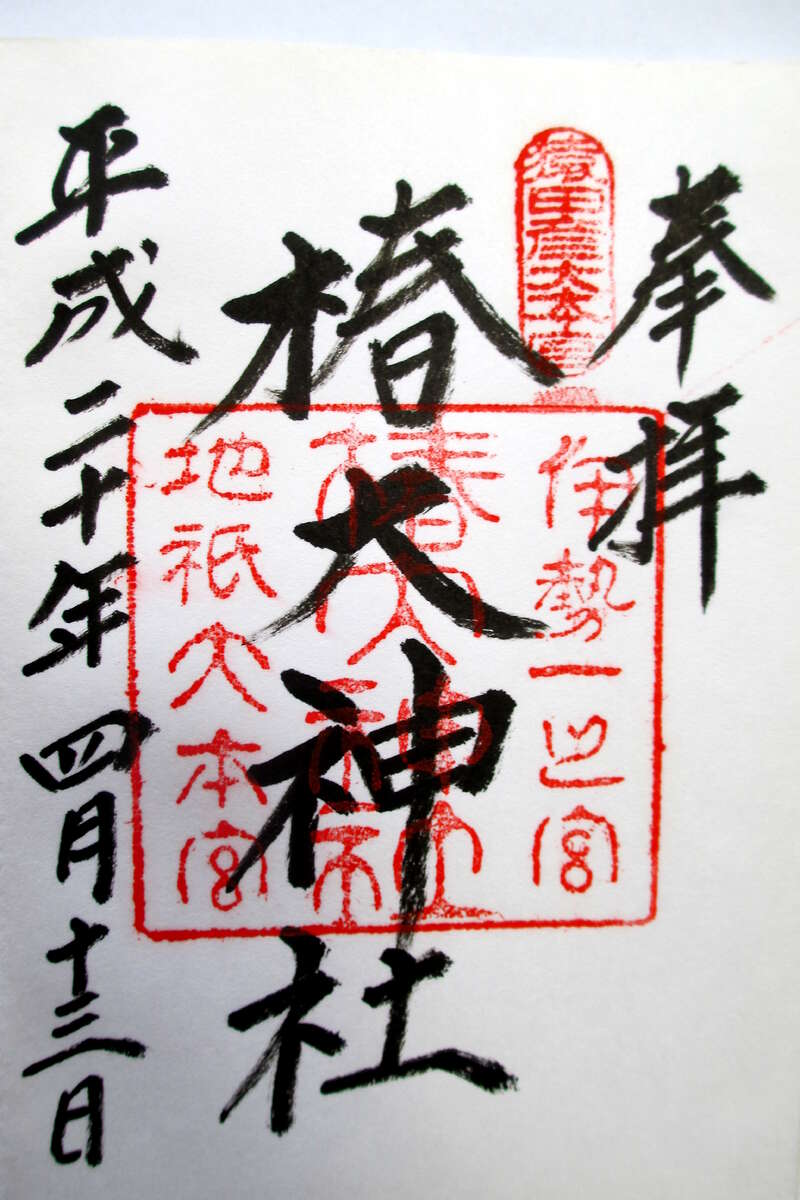 奉拝
猿田彦大本宮
伊勢一之宮
椿大神社
椿大神社
地祇大本宮
平成二十年四月十三日